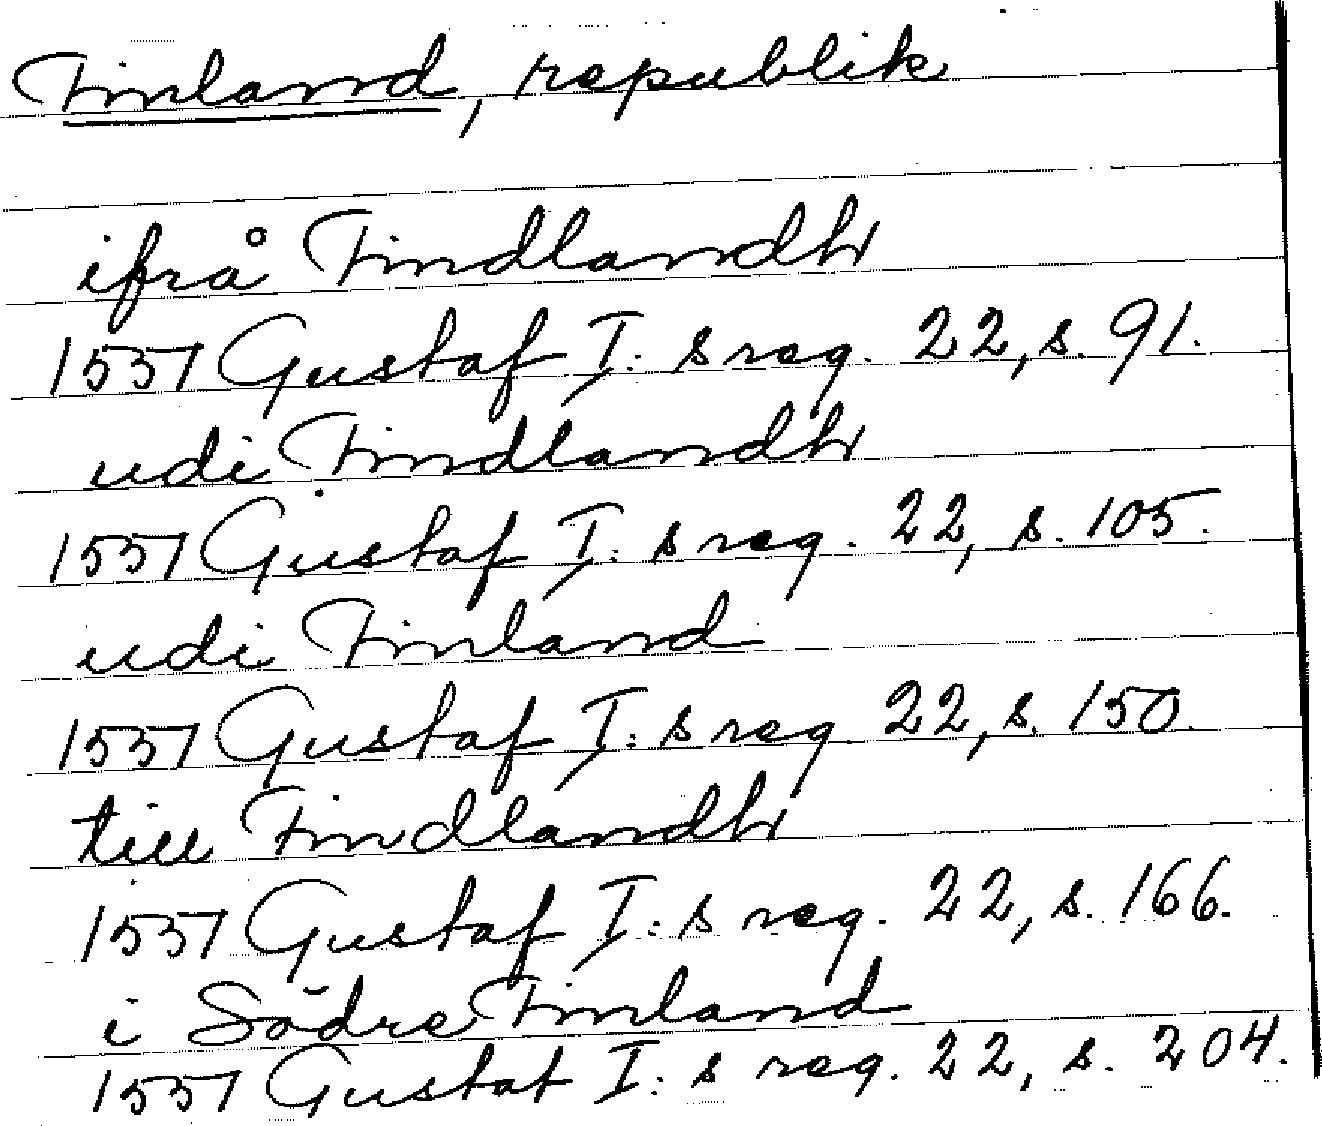 Finland, republik
ifrå Findlandh
1537 Gustaf I:s reg. 22, s. 91.
udi Findlandh
1537 Gustaf I:s reg. 22, s. 105.
udi Finland
1537 Gustaf I:s reg 22, s. 150.
till Findlandh
1537 Gustaf I:s reg. 22, s. 166.
i Södre Finland
1537 Gustaf I:s reg. 22, s. 204.